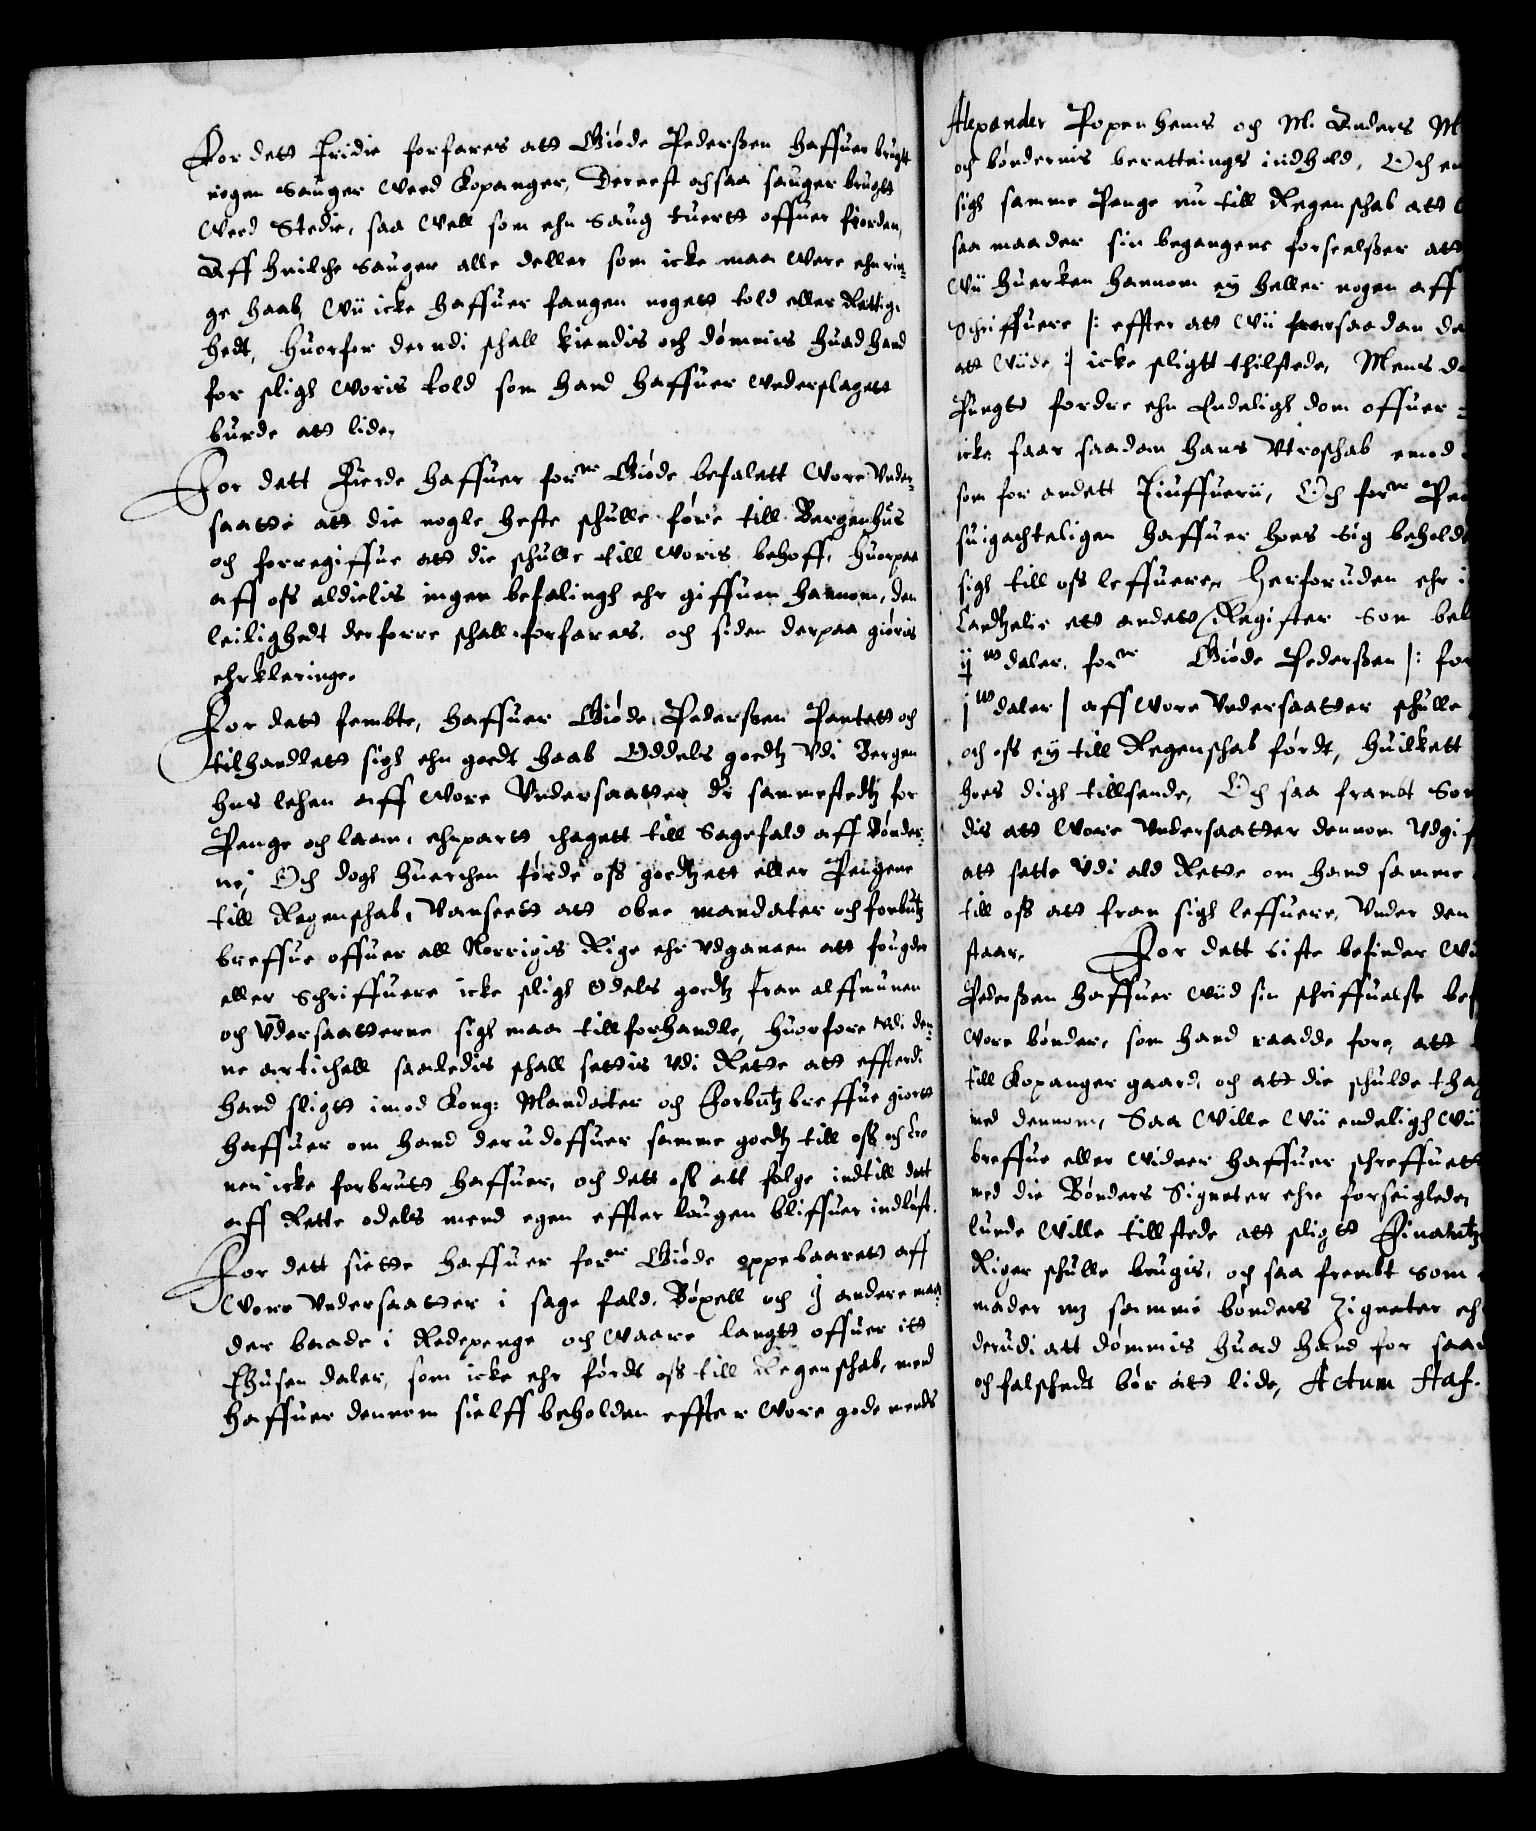 For dett Tridie forfares att Giøde Pederßen haffuer brugtt
nogen Sauger Weed Kopanger, Dernest och saa sauger brugtt
Weed Stedie, saa Well som ehn Saug tuertt offuer fiorden,
Aff huilche Sauger alle deller som icke maa Were ehn rin-
ge haab, Wii icke haffuer fangen nogett told eller Rettig-
hedt, Huorfor derudi schall kiendis och dømmis huad hand
for sligh Woris told som hand haffuer Wederslagett
burde att lide,
For dett Fierde haffuer forne Giøde befalett Wore Vnder-
saatte att die nogle heste schulle føre till Bergenhus
och forregiffue att die schulle till Woris behoff, huorpaa
aff oss aldielis ingen befalingh ehr giffuen hannom, den
leilighedt derforre schall forfares, och siden derpaa giøris
ehrkleringe.
For dett fembte, haffuer Giøde Pederßen Pantett och
tilhandlett sigh ehn goedt haab Oddels goedtz Vdi Bergen
hus lehen aff Wore Vndersaatter der sammestedtz for
Penge och laan, ehnpartt thagett till Sagefald aff Bønder-
ne, Och dogh huerchen førde oss goedtzett eller Pengene
till Regenschab, Vanseett att obne mandater och forbutz
breffue offuer all Norrigis Rige ehr Vdgangen att fougder
eller Schriffuere icke sligh Odels goedtz fran alffmunen
och Vdersaatterne sigh maa tillforhandle, Huorfore Vdi den-
ne artichell saaledis schall settis Vdi Rette att effterdi
hand sligtt imod Kong: Mandater och Forbutzbreffue giortt
haffuer om hand derudoffuer samme goedtz till oss och Cro
nen icke forbrutt haffuer, och dett oss att følge indtill dett
aff Rette odels mend egen effter lougen bliffuer indløst.
For dett siette haffuer forne Giøde oppebaarett aff
Wore Vndersaatter i sage fald, Bøxell och j andere maa-
der baade i Redepenge och Waare langtt offuer itt
Thusen daler, som icke ehr førdt oss till Regenschab, mend
haffuer dennom sielff beholden effter Wore gode mends
Alexander Popenhems och M. Anders M
och bøndernis berettnings indhold, Och en
sigh samme Penge nu till Regenschab att
saa maader sin begangene forseelßer att
Wii huerken hannom ey heller nogen aff
Schriffuere |: effter att Wii saadan de
att Wiide :| icke sligtt thilstede, Mens de
Pungtt fordre ehn Endeligh dom offuer
icke faar saadan hans Vtroschab emod
som for andett Tiuffuerii, Och forne Pe
suigachteligen haffuer hoes sig beholde
sigh till oss leffuere, Herforuden ehr i
Cantzelie ett andett Register som bel
daler, forne Giøde Pederßen |: for
daler | aff Wore Vndersaatter schulle
och oss ey till Regenschab førdt, huilkett
hoes digh tillsende, Och saa frambt Som
dis att Wore Vndersaatter dennom Vdgif
att sette Vdi ald Rette om hand samme
till oss att fran sigh leffuere, Vnder den
staar, For dett siste befinder Wii
Pederßen haffuer Wiid sin schriffuelse bef
Wore bønder, som hand raadde fore, att
till Kopanger gaard, och att die schulde thag
med dennom, Saa Wille Wii endeligh Wii
breffue eller Vidner haffuer schreffuett
med die Bønders Signeter ehre forseigleder
lunde Wille tillstede att sligtt Finantz
Riger schulle brugis, och saa frembt som
mader mz samme bønders Zigneter eh
derudi att dømmis huad hand for saa
och falschedt bør att lide, Actum Haf.